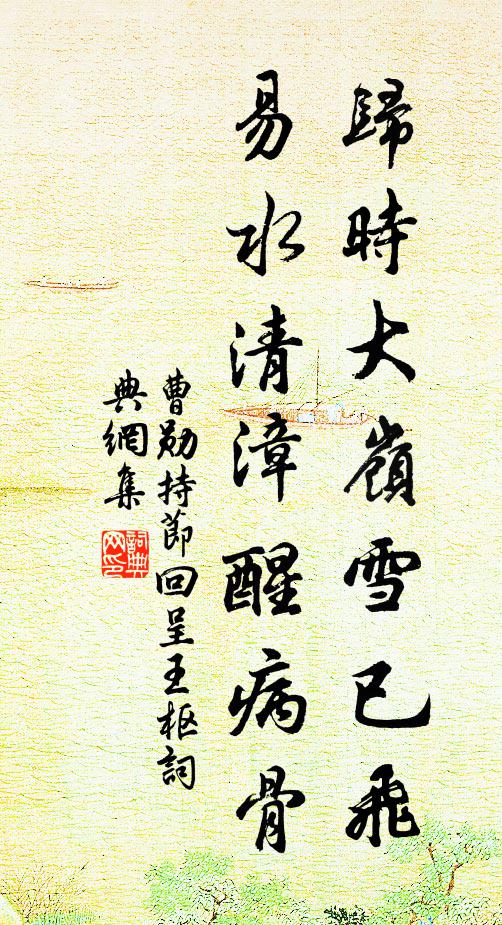 歸時大嶺雪已飛
易水清漳醒病骨
曹勛持節回呈王樞詞
典網集
詞典网印